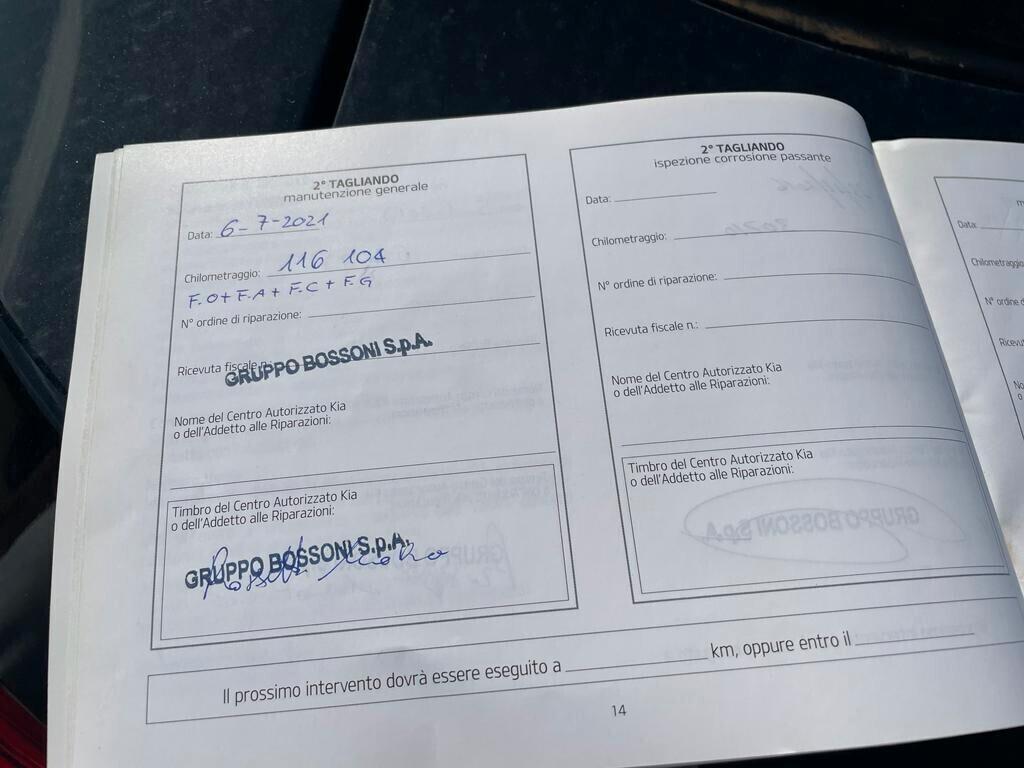 2° TAGLIANDO
manutenzione generale
Data: 6-7-2021
Chilometraggio: 116 104
F.O + F.A + F.C + F.G
N° ordine di riparazione:
Ricevuta fiscale n.:
GRUPPO BOSSONI S.p.A.
Nome del Centro Autorizzato Kia
o dell'Addetto alle Riparazioni:
Timbro del Centro Autorizzato Kia
o dell'Addetto alle Riparazioni:
GRUPPO BOSSONI S.p.A.
2° TAGLIANDO
ispezione corrosione passante
Data:
Chilometraggio:
N° ordine di riparazione:
Ricevuta fiscale n.:
Nome del Centro Autorizzato Kia
o dell'Addetto alle Riparazioni:
Timbro del Centro Autorizzato Kia
o dell'Addetto alle Riparazioni:
Il prossimo intervento dovrà essere eseguito a km, oppure entro il
14
Data:
Chilometraggio
N° ordine di
Ricevu
No
o